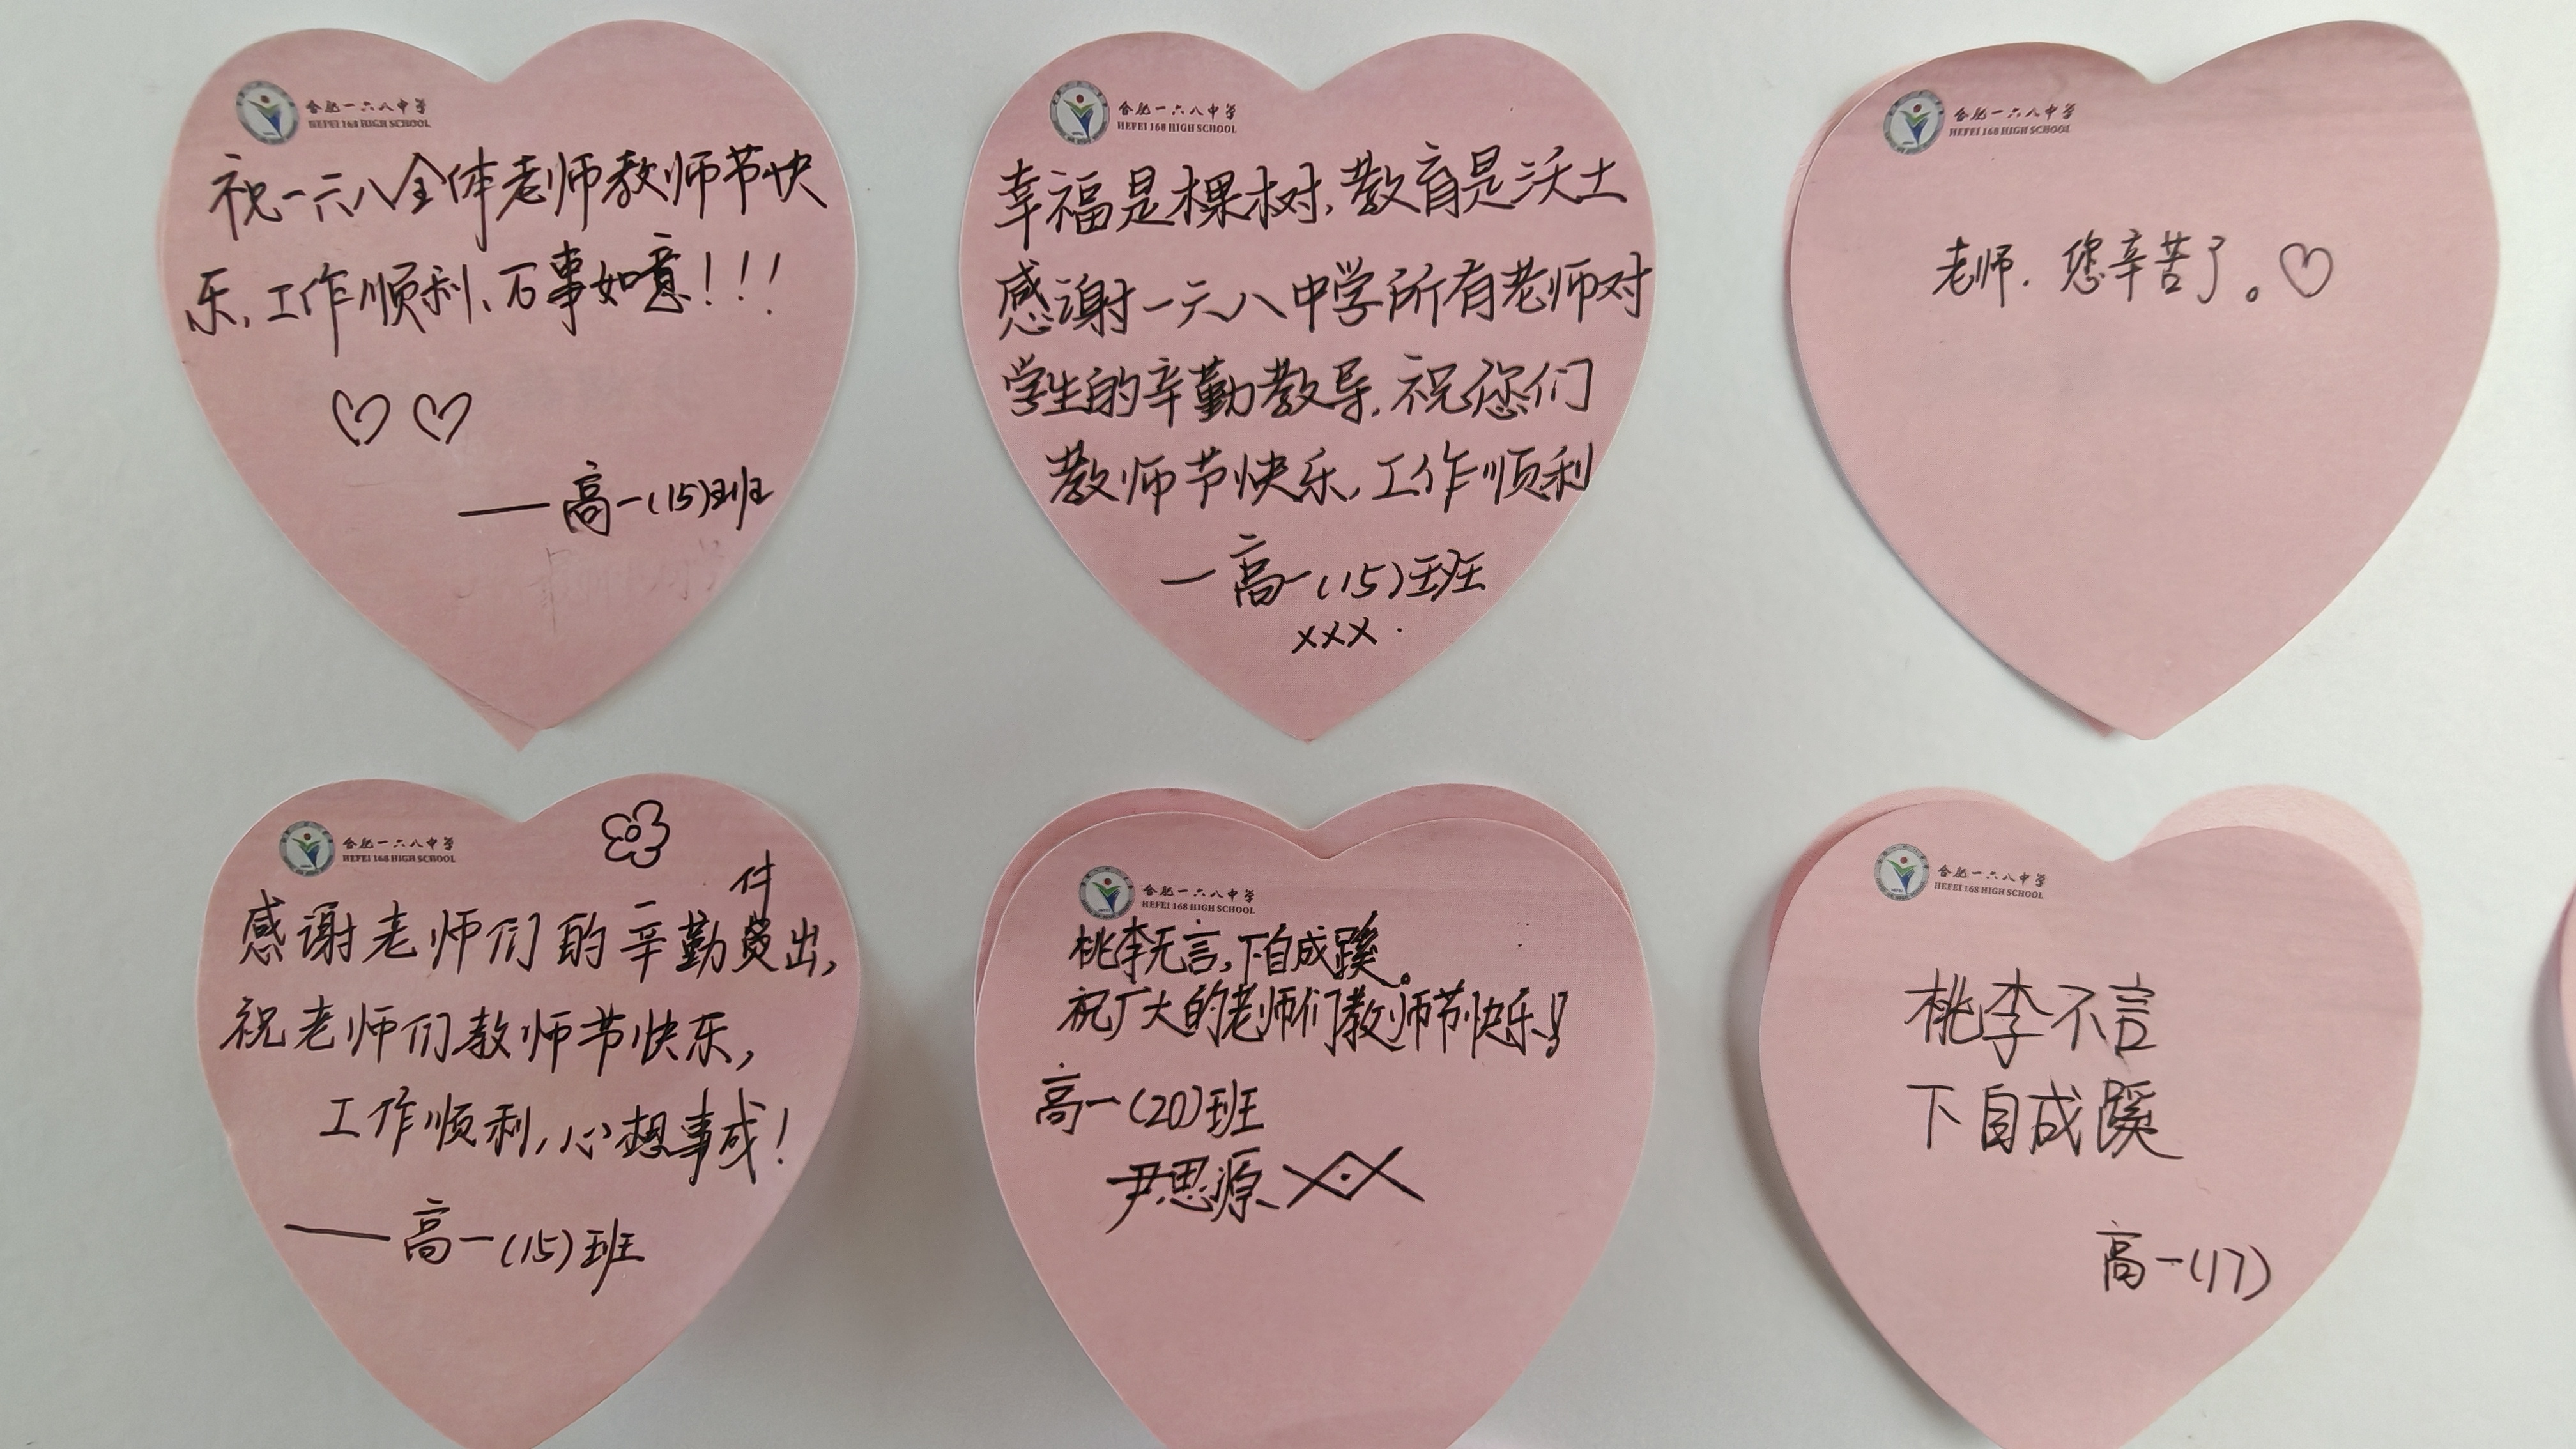 合肥一六八中学
HEFEI 168 HIGH SCHOOL
祝一六八全体老师教师节快
乐,工作顺利、万事如意!!!
——高一(15)班
合肥一六八中学
HEFEI 168 HIGH SCHOOL
幸福是棵树,教育是沃土
感谢一六八中学所有老师对
学生的辛勤教导,祝您们
教师节快乐,工作顺利
—高一(15)班
xxx.
合肥一六八中学
HEFEI 168 HIGH SCHOOL
老师.您辛苦了。
合肥一六八中学
HEFEI 168 HIGH SCHOOL
付
感谢老师们的辛勤出,
祝老师们教师节快乐,
工作顺利,心想事成!
——高一(15)班
合肥一六八中学
HEFEI 168 HIGH SCHOOL
桃李无言,下自成蹊。
祝广大的老师们教师节快乐!
高一(20)班
尹思源
合肥一六八中学
HEFEI 168 HIGH SCHOOL
桃李不言
下自成蹊
高一(17)